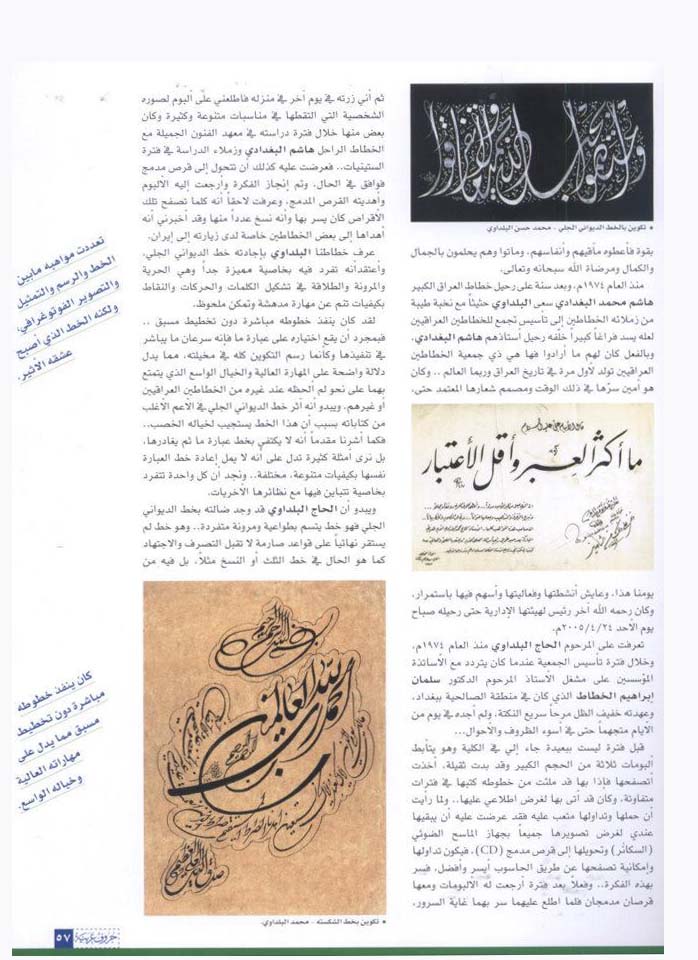 تكوين بالخط الديواني الجلي - محمد حسن البلداوي
بقوة فأعطوه مآقيهم وأنفاسهم، وماتوا وهم يحلمون بالجمال
والكمال ومرضاة الله سبحانه وتعالى.
منذ العام ١٩٧٤م، وبعد سنة على رحيل خطاط العراق الكبير
هاشم محمد البغدادي سعى البلداوي حثيثاً مع نخبة طيبة
من زملائه الخطاطين إلى تأسيس تجمع للخطاطين العراقيين
لعله يسد فراغاً كبيراً خلّفه رحيل أستاذهم هاشم البغدادي،
وبالفعل كان لهم ما أرادوا فها هي ذي جمعية الخطاطين
العراقيين تولد لأول مرة في تاريخ العراق وربما العالم .. وكان
هو أمين سرّها في ذلك الوقت ومصمم شعارها المعتمد حتى،
ما أكثر العبر وأقل الأعتبار
يومنا هذا، وعايش أنشطتها وفعاليتها وأسهم فيها باستمرار،
وكان رحمه الله آخر رئيس لهيئتها الإدارية حتى رحيله صباح
يوم الأحد ٢٠٠٥/٤/٢٤م.
تعرفت على المرحوم الحاج البلداوي منذ العام ١٩٧٤م،
وخلال فترة تأسيس الجمعية عندما كان يتردد مع الأساتذة
المؤسسين على مشغل الأستاذ المرحوم الدكتور سلمان
إبراهيم الخطاط الذي كان في منطقة الصالحية ببغداد،
وعهدته خفيف الظل مرحاً سريع النكتة، ولم أجده في يوم من
الأيام متجهماً حتى في أسوء الظروف والأحوال...
قبل فترة ليست ببعيدة جاء إلي في الكلية وهو يتأبط
ألبومات ثلاثة من الحجم الكبير وقد بدت ثقيلة، أخذت
أتصفحها فإذا بها قد ملئت من خطوطه كتبها في فترات
متفاوتة، وكأن قد أتى بها لغرض اطلاعي عليها.. ولما رأيت
أن حملها وتداولها متعب عليه فقد عرضت عليه أن يبقيها
عندي لغرض تصويرها جميعاً بجهاز الماسح الضوئي
(السكانر) وتحويلها إلى قرص مدمج (CD)، فيكون تداولها
وإمكانية تصفحها عن طريق الحاسوب أيسر وأفضل، فسر
بهذه الفكرة.. وفعلاً بعد فترة أرجعت له الألبومات ومعها
قرصان مدمجان فلما اطلع عليهما سر بهما غاية السرور،
ثم أني زرته في يوم آخر في منزله فأطلعني على ألبوم لصوره
الشخصية التي التقطها في مناسبات متنوعة وكثيرة وكان
بعض منها خلال فترة دراسته في معهد الفنون الجميلة مع
الخطاط الراحل هاشم البغدادي وزملاء الدراسة في فترة
الستينيات.. فعرضت عليه كذلك أن تتحول إلى قرص مدمج
فوافق في الحال، وتم إنجاز الفكرة وأرجعت إليه الألبوم
وأهديته القرص المدمج، وعرفت لاحقاً أنه كلما تصفح تلك
الأقراص كان يسر بها وأنه نسخ عدداً منها وقد أخبرني أنه
أهداها إلى بعض الخطاطين خاصة لدى زيارته إلى إيران.
عرف خطاطنا البلداوي بإجادته خط الديواني الجلي،
وأعتقد أنه تفرد فيه بخاصية مميزة جداً وهي الحرية
والمرونة والطلاقة في تشكيل الكلمات والحركات والنقاط
بكيفيات تنم عن مهارة مدهشة وتمكن ملحوظ.
لقد كان ينفذ خطوطه مباشرة دون تخطيط مسبق ..
فبمجرد أن يقع اختياره على عبارة ما فإنه سرعان ما يباشر
في تنفيذها وكأنما رسم التكوين كله في مخيلته، مما يدل
دلالة واضحة على المهارة العالية والخيال الواسع الذي يتمتع
بهما على نحو لم ألحظه عند غيره من الخطاطين العراقيين
أو غيرهم. ويبدو أنه آثر خط الديواني الجلي في الأعم الأغلب
من كتاباته بسبب أن هذا الخط يستجيب لخياله الخصب..
فكما أشرنا مقدماً أنه لا يكتفي بخط عبارة ما ثم يغادرها،
بل نرى أمثلة كثيرة تدل على أنه لا يمل إعادة خط العبارة
نفسها بكيفيات متنوعة، مختلفة.. ونجد أن كل واحدة تتفرد
بخاصية تتباين فيها مع نظائرها الأخريات.
ويبدو أن الحاج البلداوي قد وجد ضالته بخط الديواني
الجلي فهو خط يتسم بطواعية ومرونة متفردة.. وهو خط لم
يستقر نهائياً على قواعد صارمة لا تقبل التصرف والاجتهاد
كما هو الحال في خط الثلث أو النسخ مثلاً، بل فيه من
الحمد لله رب العالمين
صدق الله العظيم
تكوين بخط الشكسته - محمد البلداوي.
تعددت مواهبه مابين
الخط والرسم والتمثيل
والتصوير الفوتوغرافي،
ولكنه الخط الذي أصبح
عشقه الأثير.
كان ينفذ خطوطه
مباشرة دون تخطيط
مسبق مما يدل على
مهاراته العالية
وخياله الواسع.
حروف عربية
٥٧